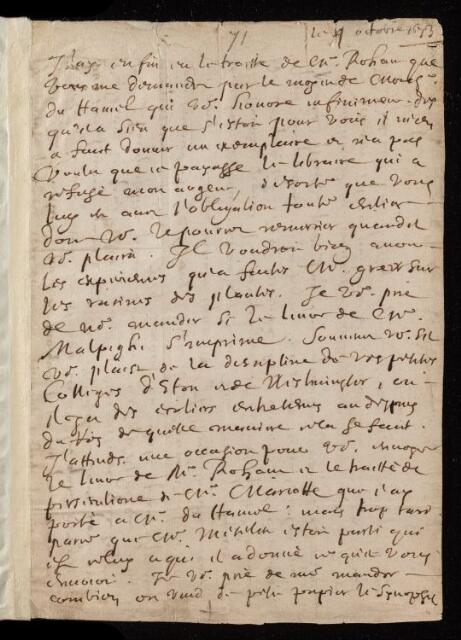 71 le 4 octobre 1673
J'ay enfin eu le traitté de Mr. Rohau que
vous me demandez par le moien de Mons.
du Hamel qui vs. honore infiniment. dez
qu'il a sceu que c'estoit pour vous il m'en
a fait donner un exemplaire et n'a pas
voulu que je payasse le libraire qui a
refusé mon argent, de sorte que vous
luy en avez l'obligation toute entiere
dont vs. le pourrez remercier quand il
vs. plaira. Il voudroit bien avoir
les experiences qu'a faites Mr. grew sur
les racines des plantes. Je vs. prie
de me mander si le livre de Mr.
Malpighi s'imprime. Souvenez vs. s'il
vs. plaist de la discipline de vos petits
Colleges d'Eton et de Westminster, en
des ecoliers entretenus au dessus
de quelle maniere cela se fait.
J'attends une occasion pour vs. envoyer
le livre de Mr. Rohau et le traitté de
percussione de Mr. Mariotte que j'ay
porté a Mr. du Hamel: mais trop tard
parce que Mr. estoit parti qui
est celuy a qui il a donné ce qu'il vous
envoioit. Je vs. prie de me mander
combien on vend de petit papier le Synopsis